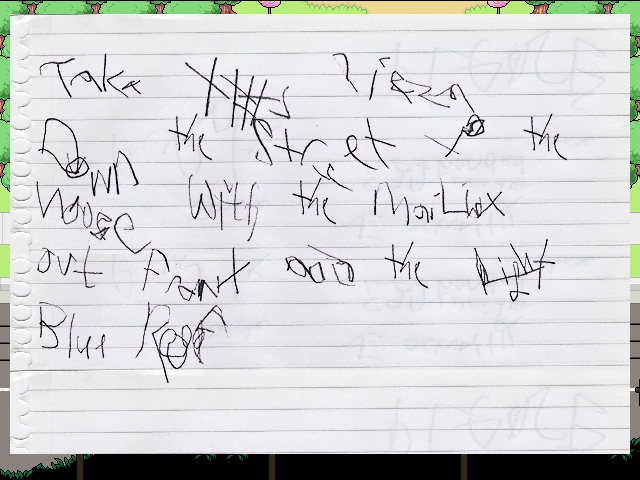 Take this Pizza
Down the Street to the
House With the MailBox
out Front and the Light
Blue Roof